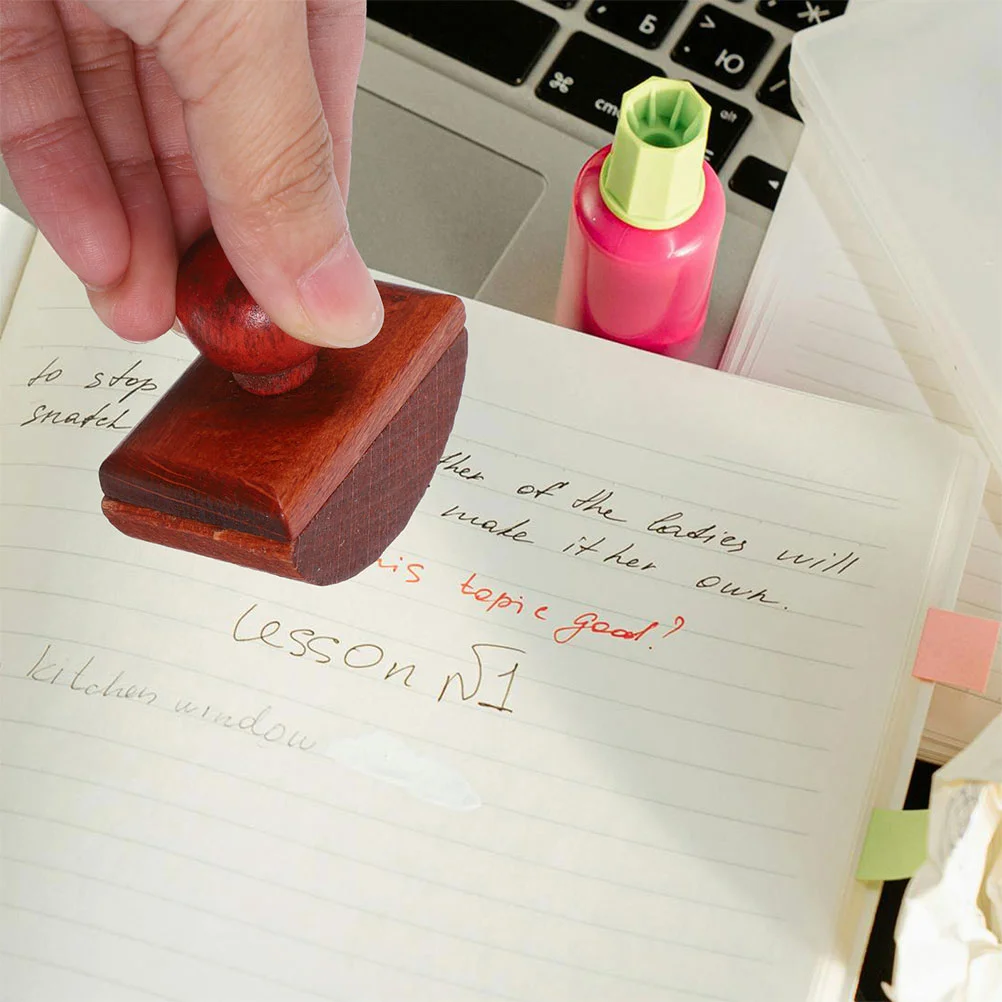 Б
> Ю
⌘
cmd
alt
to stop
snatch
ther of the ladies will
make it her own.
his topic good?
Lesson №1
kitchen window